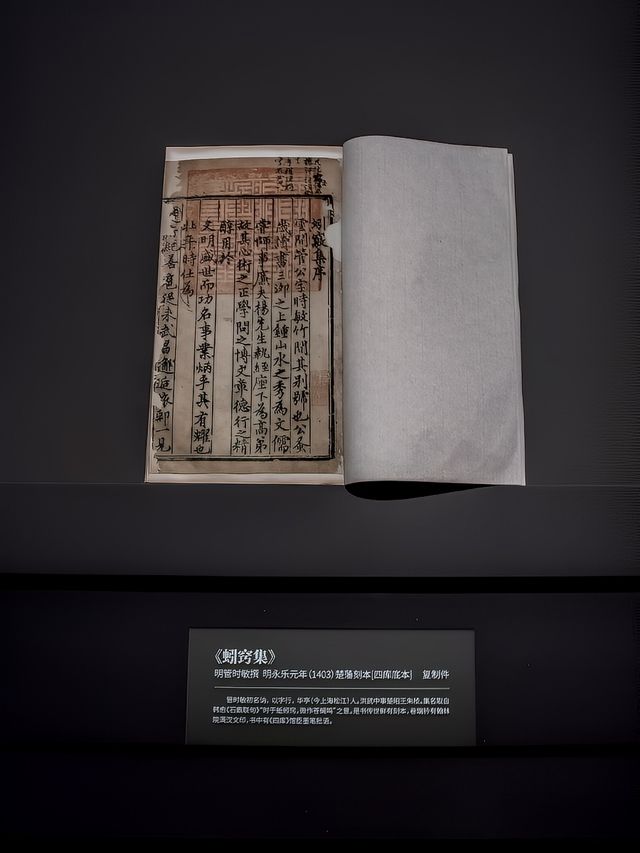 蚓竅集序
雲間管公字時敏竹間其別號也公蚤
歲 書三泖之上鍾山水之秀為文儒
嘗師事廉夫楊先生執經座下為高弟
故其心術之正學問之博文章德行之精
醇用於
文明盛世而功名事業炳乎其有耀也
北平時仕為
善 武昌 一見
《蚓窍集》
明管时敏撰 明永乐元年（1403）楚藩刻本[四库底本] 复制件
管时敏初名讷，以字行，华亭（今上海松江）人，洪武中事楚昭王朱桢。集名取自
韩愈《石鼎联句》“时于蚯蚓窍，微作苍蝇鸣”之意。是书传世鲜有刻本，卷端钤有翰林
院满汉文印，书中有《四库》馆臣墨笔批语。